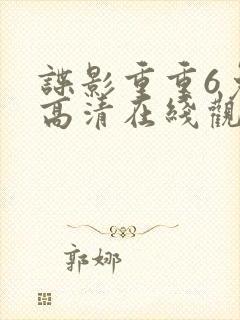 諜影重重6
高清在綫觀
郭娜